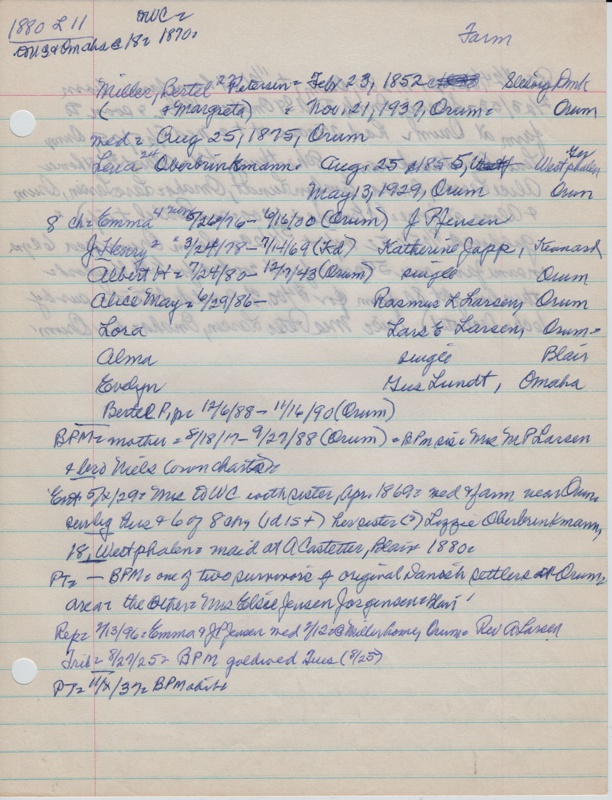 1880 L 11
Farm
Miller, Bertel Petersen = Feb 23, 1852 Denmk
( & Margreta) = Nov. 21, 1937, Orum = Orum
med = Aug 25, 1875, Orum
Lena Oberbrinkmann = Aug. 25, 1855, Westphalen Ger
May 13, 1929, Orum Orum
8 ch = Emma 5/26/76 - 6/16/00 (Orum) J P Jensen
J. Henry = 3/24/78 - 7/14/69 (Kd) Katherine Japp, Kennard
Albert H = 7/24/80 - 12/7/43 (Orum) single Orum
Alice May = 6/29/86 - Rasmus L Larsen, Orum
Lora Lars E Larsen, Orum =
Alma single Blair
Evelyn Gus Lundt, Omaha
Bertel P, jr = 12/6/88 - 11/16/90 (Orum)
BPM = mother = 8/18/17 - 9/27/88 (Orum) = BPM sis = Mrs M P Larsen
& bro Niels (own chart) =
Ent 5/x/29 = Mrs to WC with sister, Apr. 1869 = med & farm near Orum =
surv by hus & 6 of 8 ch, (1d 1s +) her sister (?) Lizzie Oberbrinkmann,
18, Westphalen = maid at A Castetter, Blair 1880 =
PT = — BPM = one of two survivors of original Danish settlers at Orum =
area = the other = Mrs Elsie Jensen Jorgensen = Blair
Rep = 3/13/96 = Emma & J P Jensen med @ Miller home, Orum = Rev A Larsen
Trib = 8/27/25 = BPM goldwed Tues (8/25)
PT = 11/x/37 = BPM obit =